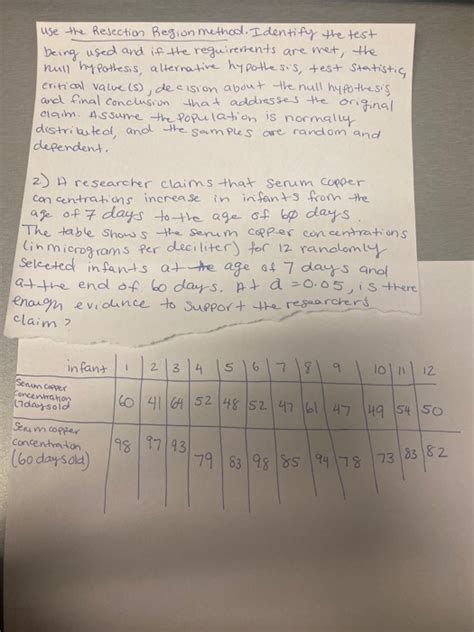 use the Rejection Region method. Identify the test
being used and if the requirements are met, the
null hypothesis, alternative hypothesis, test statistic,
critical value(s), decision about the null hypothesis
and final conclusion that addresses the original
claim. Assume the population is normally
distributed, and the samples are random and
dependent.
2) A researcher claims that serum copper
concentrations increase in infants from the
age of 7 days to the age of 60 days.
The table shows the serum copper concentrations
(in micrograms per deciliter) for 12 randomly
selected infants at the age of 7 days and
at the end of 60 days. At α = 0.05, is there
enough evidence to support the researchers
claim?
infant 1 2 3 4 5 6 7 8 9 10 11 12
Serum copper
concentration
(7 days old 60 41 64 52 48 52 47 61 47 49 54 50
Serum copper
concentration
(60 days old) 98 97 93 79 83 98 85 94 78 73 83 82